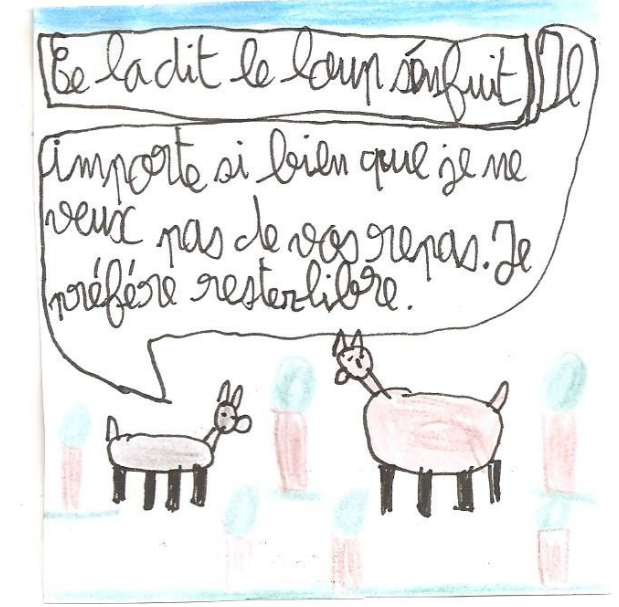 Ce la dit le loup s'enfuit Il
importe si bien que je ne
veux pas de vos repas. Je
préfére rester libre.